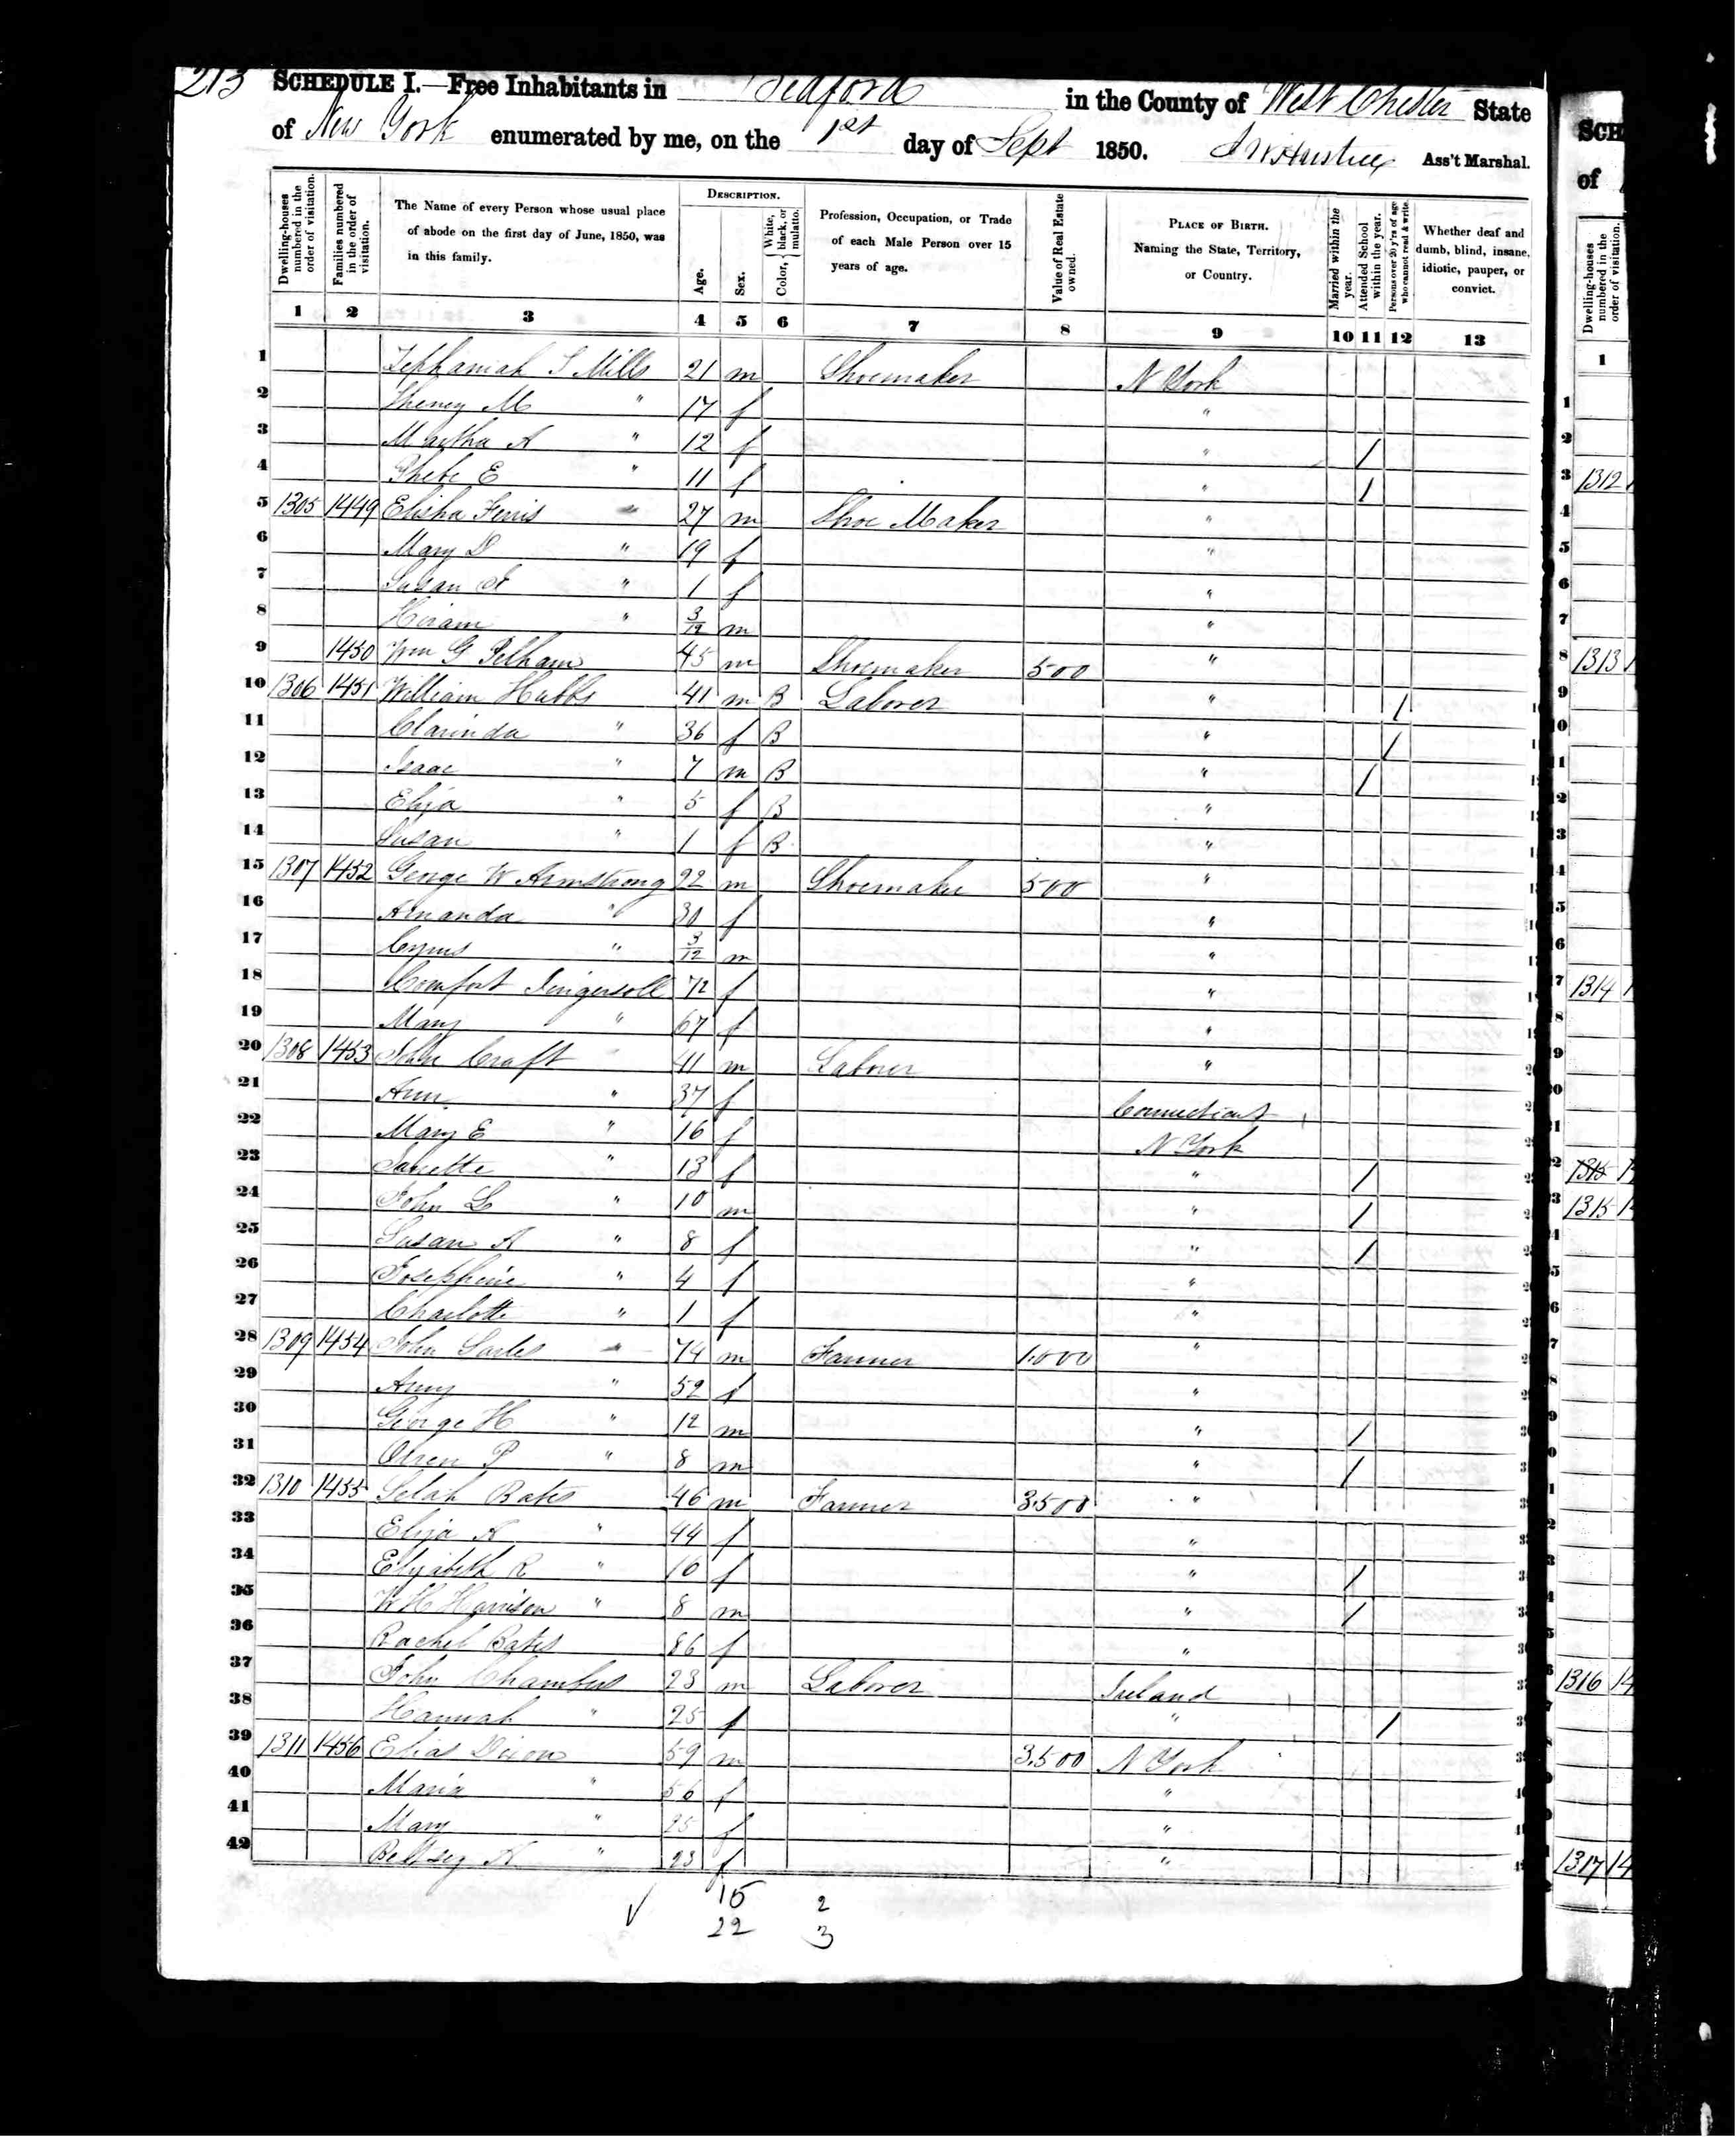 213 SCHEDULE I.—Free Inhabitants in Bedford in the County of West Chester State
of New York enumerated by me, on the 1st day of Sept 1850. Ass't Marshal.
Dwelling-houses numbered in the order of visitation.
Families numbered in the order of visitation.
The Name of every Person whose usual place of abode on the first day of June, 1850, was in this family.
DESCRIPTION.
Age.
Sex.
Color, White, black, or mulatto.
Profession, Occupation, or Trade of each Male Person over 15 years of age.
Value of Real Estate owned.
PLACE OF BIRTH. Naming the State, Territory, or Country.
Married within the year.
Attended School within the year.
Persons over 20 y'rs of age who cannot read & write.
Whether deaf and dumb, blind, insane, idiotic, pauper, or convict.
1 2 3 4 5 6 7 8 9 10 11 12 13
1 Zephaniah S Mills 21 m Shoemaker N York
2 M " 17 f "
3 Martha A " 12 f " /
4 Phebe E " 11 f " /
5 1305 1449 Elisha Ferris 27 m Shoe Maker "
6 Mary D " 19 f "
7 Susan " 1 f "
8 Hiram " 3/12 m "
9 1450 Wm G Pelham 45 m Shoemaker 500 "
10 1306 1451 William Hubbs 41 m B Laborer " /
11 Clarinda " 36 f B " /
12 Isaac " 7 m B " /
13 Eliza " 5 f B "
14 Susan " 1 f B "
15 1307 1452 George W Armstrong 22 m Shoemaker 500 "
16 Amanda " 30 f "
17 Cyrus " 3/12 m "
18 Comfort Ingersoll 72 f "
19 Mary " 67 f "
20 1308 1453 John Craft 41 m Laborer "
21 Ann " 37 f Connecticut
22 Mary E " 16 f N York
23 " 13 f " /
24 John L " 10 m " /
25 Susan A " 8 f " /
26 Josephine " 4 f "
27 Charlotte " 1 f "
28 1309 1454 John Sarles 74 m Farmer 1,000 "
29 Amy " 52 f "
30 George H " 12 m " /
31 Orren P " 8 m " /
32 1310 1455 Selah Bates 46 m Farmer 3,500 "
33 Eliza A " 44 f "
34 Elizabeth R " 10 f " /
35 W H Harrison " 8 m " /
36 Rachel Bates 86 f "
37 John Chambers 23 m Laborer Ireland
38 Hannah " 25 f " /
39 1311 1456 Elias Dixon 59 m 3,500 N York
40 Maria " 56 f "
41 Mary " 25 f "
42 Bettsey A " 23 f "
15 2
22 3
SCH
of
Dwelling-houses numbered in the order of visitation.
1
1312
1313
1314
1315
1315
1316 14
1317 14